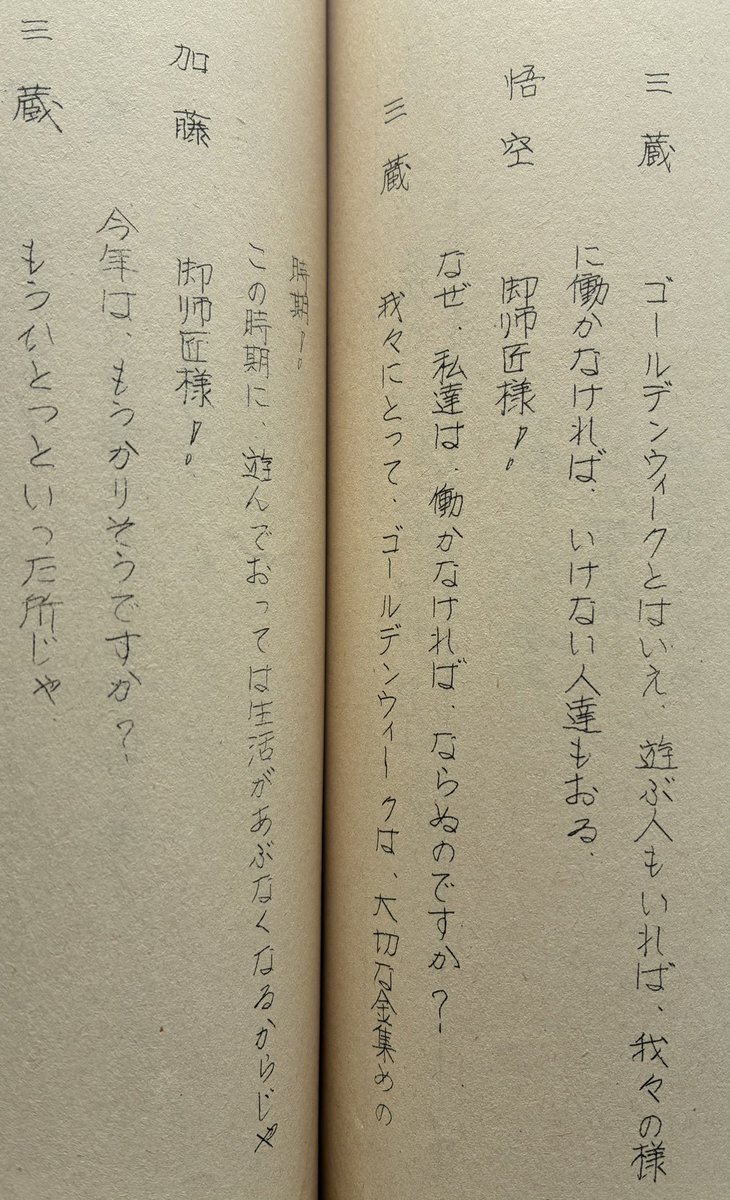 三蔵　ゴールデンウィークとはいえ、遊ぶ人もいれば、我々の様
に働かなければ、いけない人達もおる、
悟空　御師匠様！。
なぜ、私達は、働かなければ、ならぬのですか？
三蔵　我々にとって、ゴールデンウィークは、大切な金集めの
時期！。
この時期に、遊んでおっては生活があぶなくなるからじゃ
加藤　御師匠様！。
今年は、もうかりそうですか？
三蔵　もうかとつといった所じゃ、